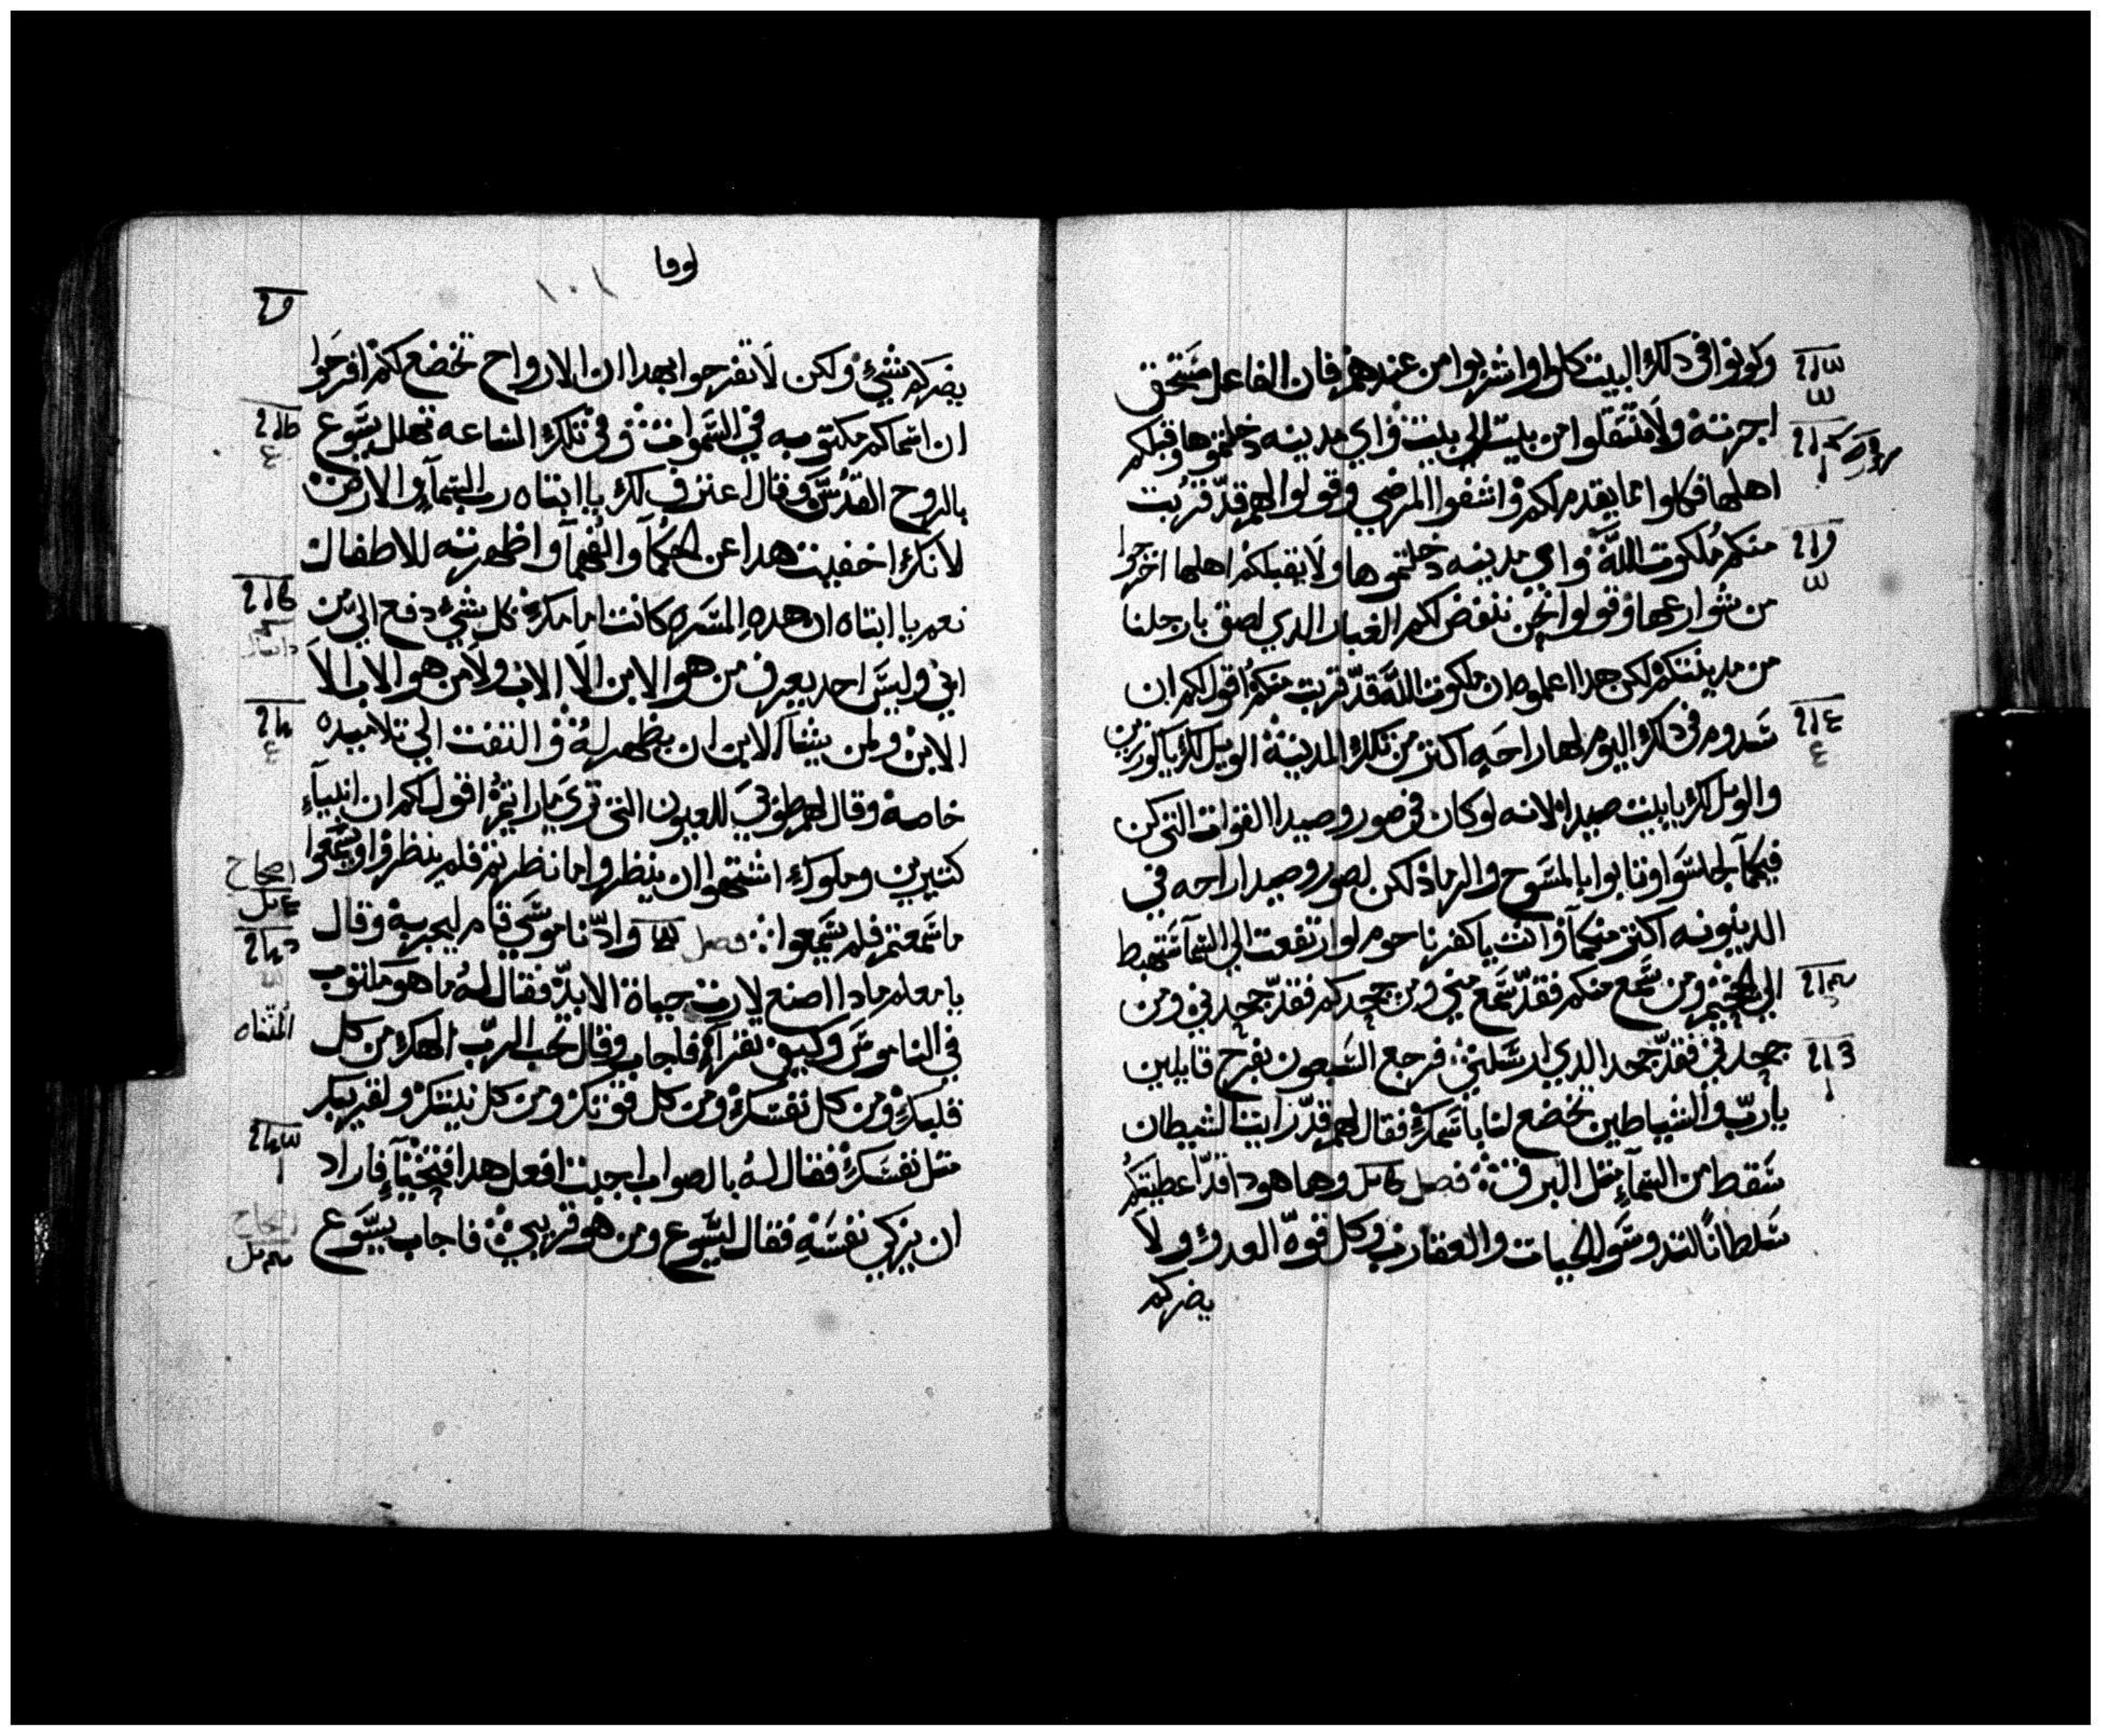 وكونوا في دلك البيت كلوا واشربوا من عندهم فان الفاعل مستحق
اجرته ولا تنتقلوا من بيت الي بيت واي مدينه دخلتموها وقبلكم
اهلها فكلوا مما يقدم لكم واشفوا المرضي وقولوا لهم قد قربت
منكم ملكوت الله واي مدينه دخلتموها ولا يقبلكم اهلها اخرجوا
من شوارعها وقولوا نحن ننفض لكم الغبار الدي لصق بارجلنا
من مدينتكم لكن هدا اعلموه ان ملكوت الله قد قربت منكم اقول لكم ان
سدوم في دلك اليوم لها راحه اكتر من تلك المدينة الويل لك يا كورزين
والويل لك يا بيت صيدا لانه لو كان في صور وصيدا القوات التي كن
فيكما لجلسوا وتابوا بالمسوح والرماد لكن لصور وصيدا راحه في
الدينونه اكتر منكما وانت يا كفرناحوم لو ارتفعت الي السما ستهبط
الي الجحيم ومن سمع منكم فقد سمع مني ومن جحدكم فقد جحدني ومن
جحدني فقد جحد الدي ارسلني فرجع السبعون بفرح قايلين
يارب والشياطين تخضع لنا باسمك فقال لهم قد رايت الشيطان
سقط من السماء متل البرق فصل وها هودا قد اعطيتكم
سلطانا لتدوسوا الحيات والعقارب وكل قوة العدو ولا
يضركم
لوقا
١٠١
يضركم شي ولكن لا تفرحوا بهدا ان الارواح تخضع لكم افرحوا
ان اسماكم مكتوبه في السموات وفي تلك الساعه تهلل يسوع
بالروح القدس وقال اعترف لك يا ابتاه رب السماء والارض
لانك اخفيت هدا عن الحكما والفهما واظهرته للاطفال
نعم يا ابتاه ان هده المسره كانت امامك كل شي دفع الي من
ابي وليس احد يعرف من هو الابن الا الاب ولا من هو الاب الا
الابن ولمن يشا الابن ان يظهر له والتفت الي تلاميده
خاصة وقال لهم طوبي للعيون التي تري ما رايتم اقول لكم ان انبياء
كتيرين وملوك اشتهوا ان ينظروا ما نظرتم فلم ينظروا ويسمعوا
ما سمعتم فلم يسمعوا فصل وادا ناموسي قام ليجربه وقال
يا معلم مادا اصنع لارت حياة الابد فقال له ما هو مكتوب
في الناموس وكيف تقراء فاجاب وقال تحب الرب الهك من كل
قلبك ومن كل نفسك ومن كل قوتك ومن كل نيتك ولقريبك
متل نفسك فقال له بالصواب اجبت افعل هدا فتحيا فاراد
ان يزكي نفسه فقال ليسوع ومن هو قريبي فاجاب يسوع